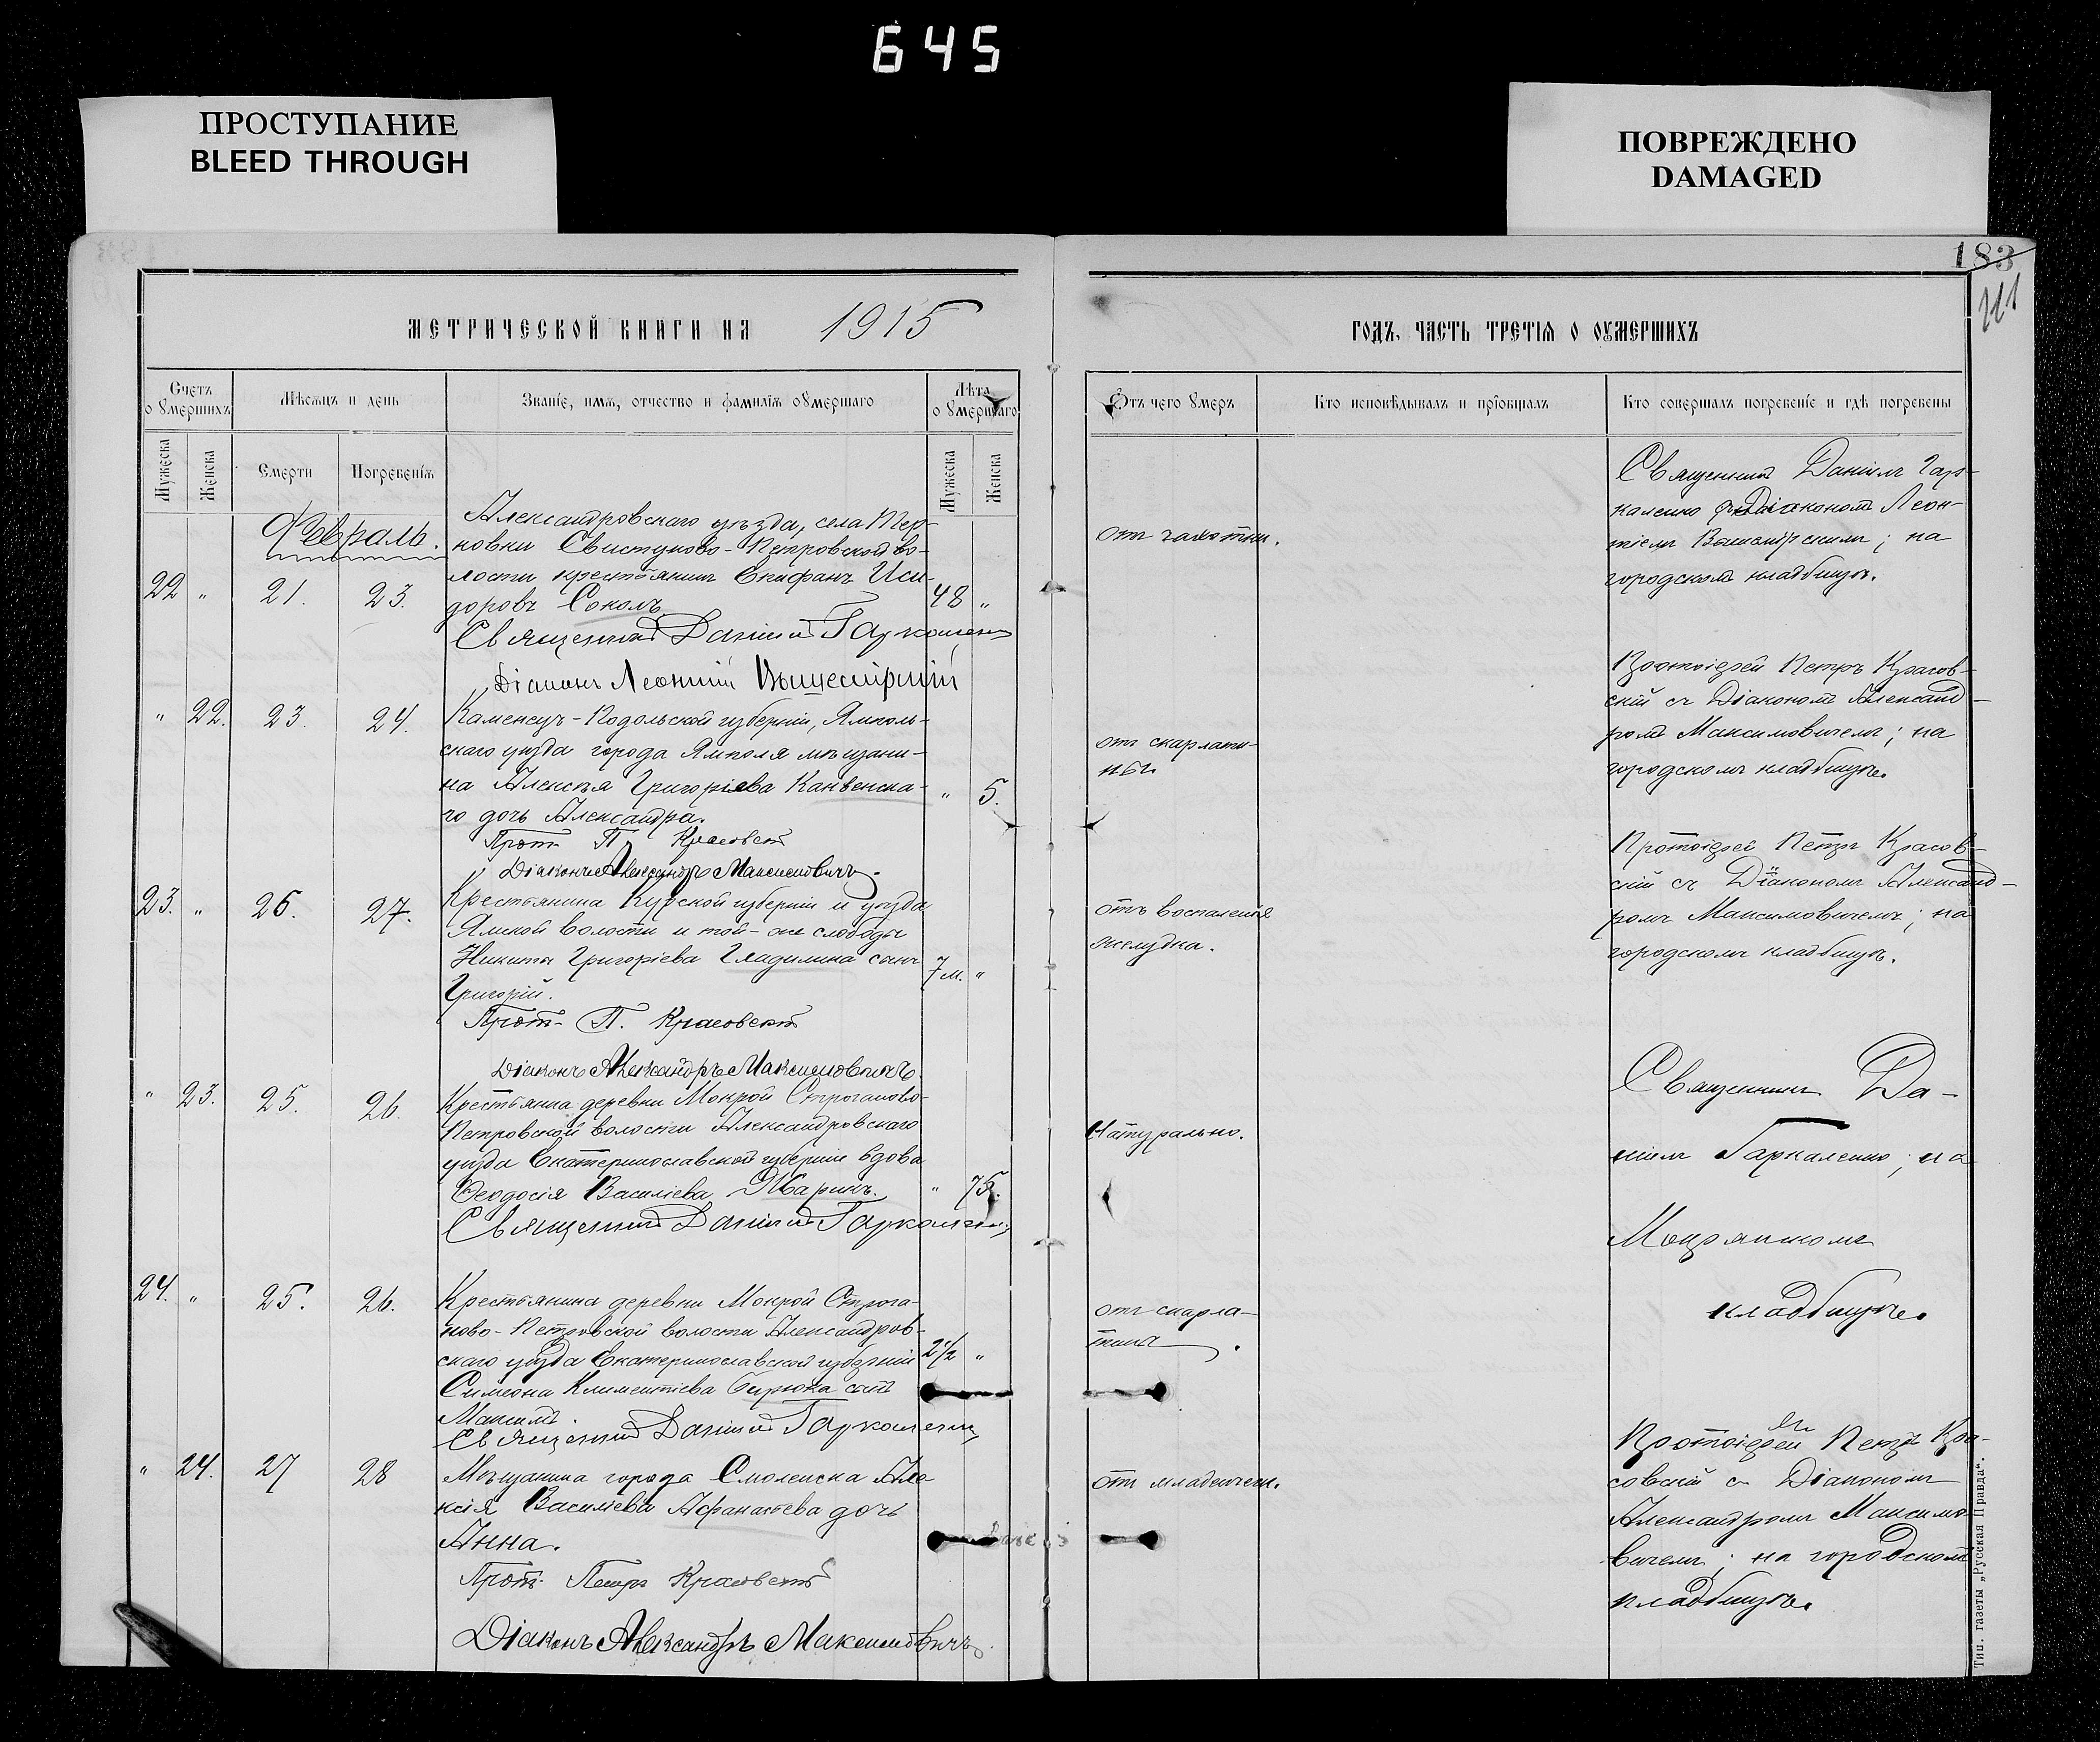 645
ПРОСТУПАНИЕ
BLEED THROUGH
ПОВРЕЖДЕНО
DAMAGED
183
МЕТРИЧЕСКОЙ КНИГИ НА 1915
ГОДЪ, ЧАСТЬ ТРЕТІЯ О ОУМЕРШИХЪ
Счетъ о умершихъ
Мѣсяцъ и день
Званіе, имя, отчество и фамилія оумершаго
Лѣта о умершаго
Мужеска
Женска
Смерти
Погребенія
Мужеска
Женска
Отъ чего умеръ
Кто исповѣдывалъ и пріобщалъ
Кто совершалъ погребеніе и гдѣ погребены
Февраль.
22 " 21. 23.
Александровскаго уѣзда, села Тер-
новки Свистуново-Петровской во-
лости крестьянинъ Епифанъ Иси-
доровъ Соколъ
48 "
Священникъ Даніилъ Гаркаленко
Діаконъ Леонтій Вышемірскій
отъ чахотки.
Священникъ Даніилъ Гар-
каленко съ Діакономъ Леон-
тіемъ Вышемірскимъ; на
городскомъ кладбищѣ.
" 22. 23. 24.
Каменецъ-Подольской губерніи, Ямполь-
скаго уѣзда города Ямполя мѣщани-
на Алексѣя Григоріева Канвенска-
го дочь Александра.
" 5.
Прот. П. Красовскій
Діаконъ Александръ Максимовичъ.
отъ скарлати-
ны.
Протоіерей Петръ Красов-
скій съ Діакономъ Александ-
ромъ Максимовичемъ; на
городскомъ кладбищѣ.
23. " 26. 27.
Крестьянина Курской губерніи и уѣзда
Ямской волости и той-же слободы
Никиты Григоріева Гладилина сынъ
Григорій.
7 м. "
Прот. П. Красовскій
Діаконъ Александръ Максимовичъ
отъ воспаленія
желудка.
Протоіерей Петръ Красов-
скій съ Діакономъ Александ-
ромъ Максимовичемъ; на
городскомъ кладбищѣ.
" 23. 25. 26.
Крестьянка деревни Мокрой Строганово-
Петровской волости Александровскаго
уѣзда Екатеринославской губерніи вдова
Ѳеодосія Василіева
" 75.
Священникъ Даніилъ Гаркаленко
Натурально.
Священникъ Да-
ніилъ Гаркаленко; на
Мокрянскомъ
кладбищѣ.
24. " 25. 26.
Крестьянина деревни Мокрой Строга-
ново-Петровской волости Александров-
скаго уѣзда Екатеринославской губерніи
Симеона Климентіева Бирюка сынъ
Максимъ.
2 1/2 "
Священникъ Даніилъ Гаркаленко
отъ скарла-
тина.
" 24. 27 28
Мѣщанина города Смоленска Але-
ксія Василіева Афанасьева дочь
Анна.
Прот. Петръ Красовскій
Діаконъ Александръ Максимовичъ.
отъ младенческ.
Протоіерей Петръ Кра-
совскій съ Діакономъ
Александромъ Максимо-
вичемъ; на городскомъ
кладбищѣ.
Тип. газеты „Русская Правда".